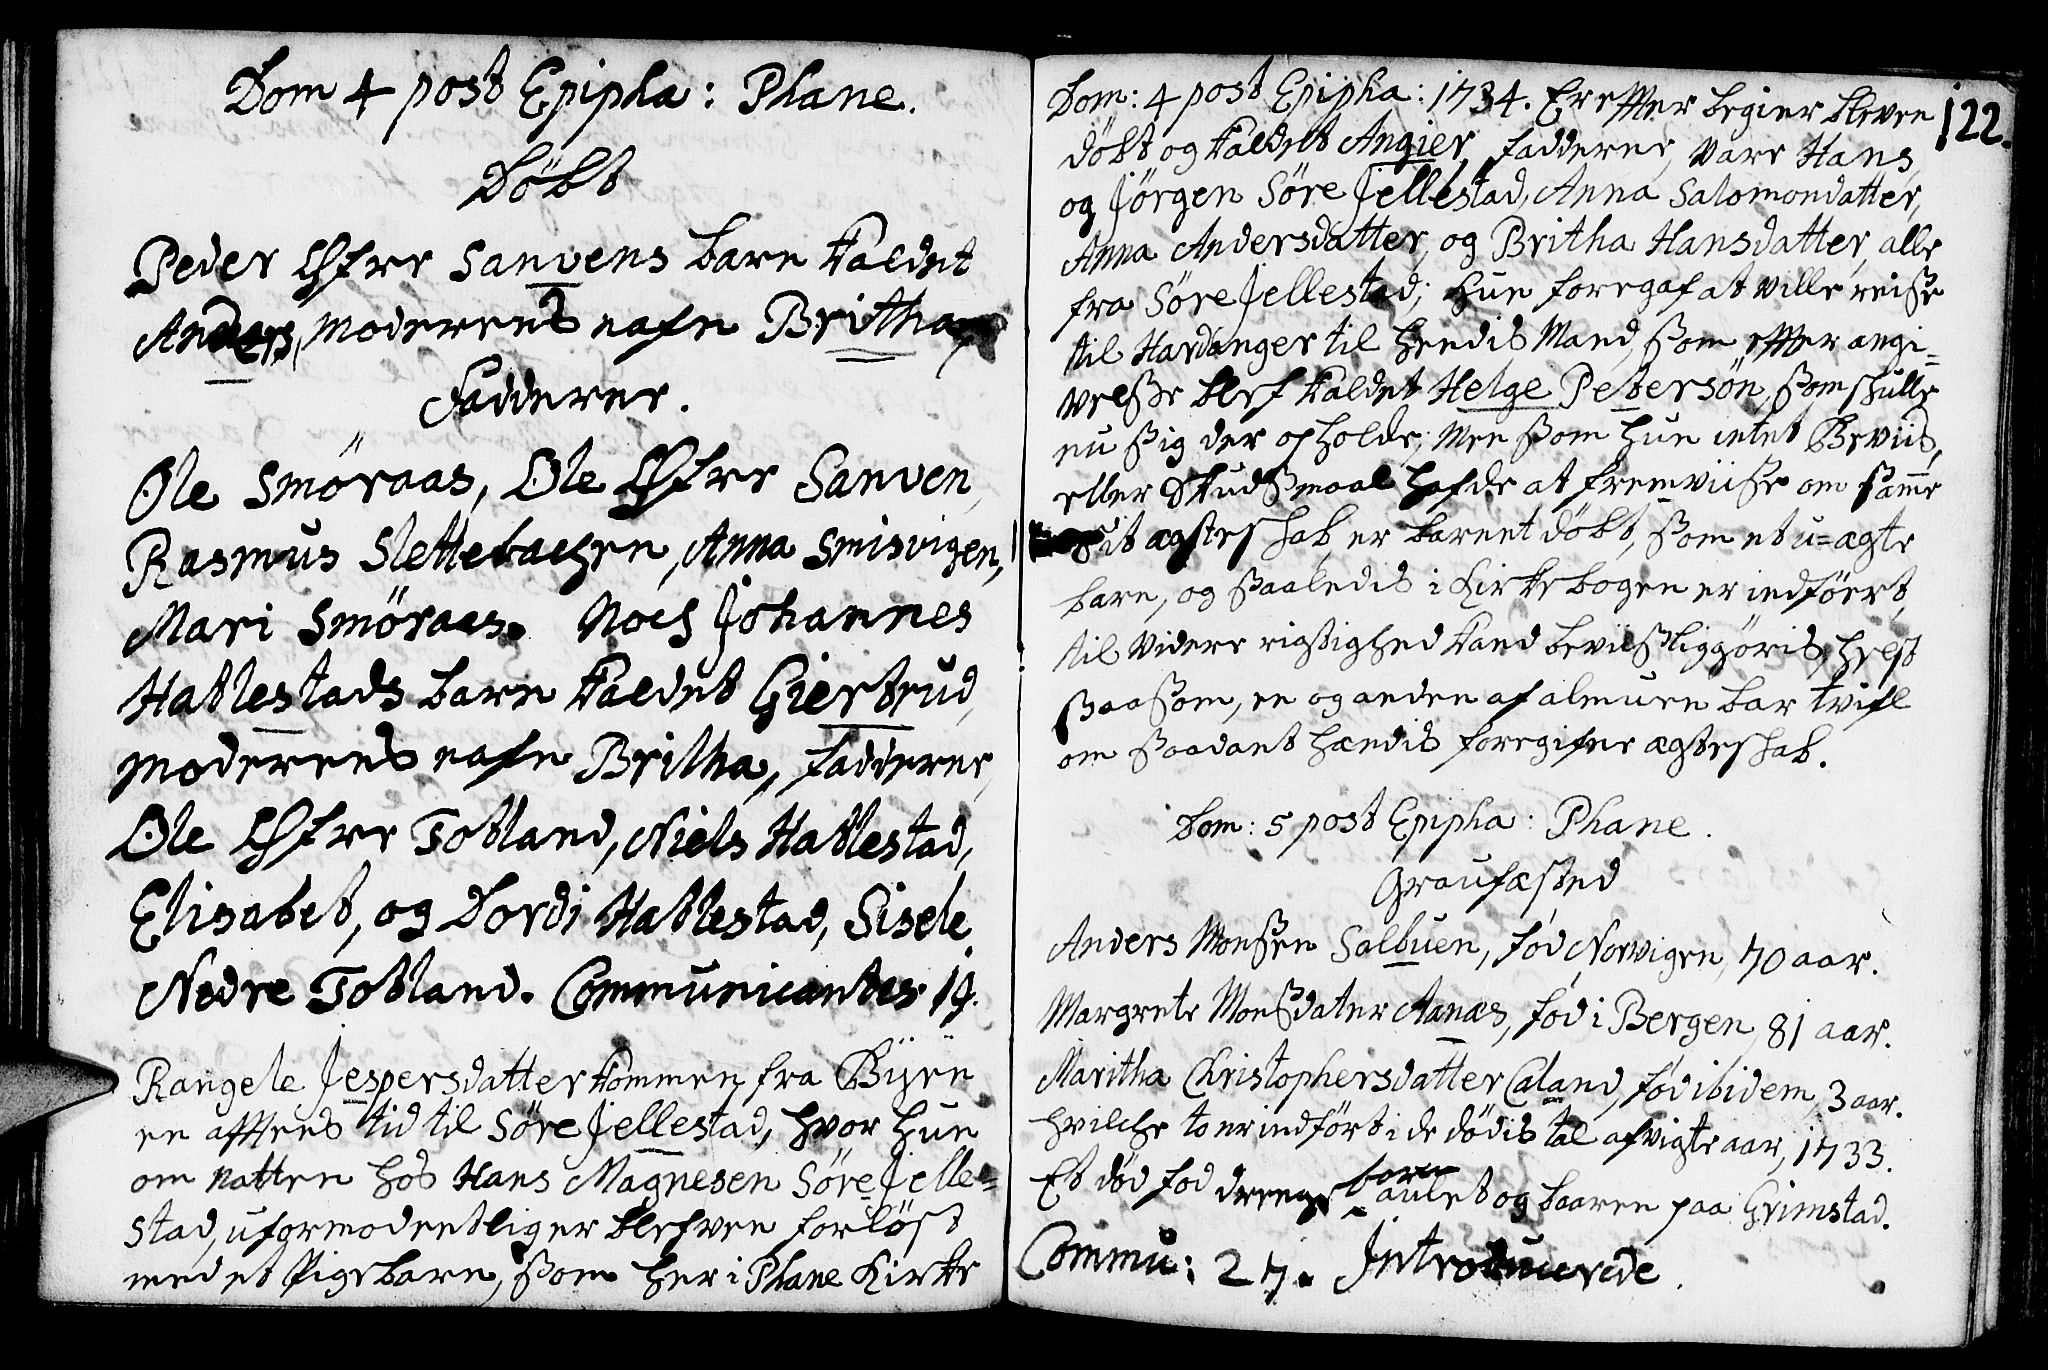 Dom 4 post Epipha: Phane.
Döbt
Peder Øfre Sanvens barn kaldet
Anders, moderens nafn Britha,
Fadderne.
Ole Smöraas, Ole Øfre Sanven,
Rasmus Slettebachen, Anna Smisvigen,
Mari Smöraas. Noch Johannes
Hatlestads barn kaldet Giertrud,
moderens nafn Britha, fadderne,
Ole Øfre Totland, Niels Hatlestad,
Elisabet, og Dordi Hatlestad, Sisele
Nedre Totland. Communicantes 19.
Rangele Jespersdatter kommen fra Byen
en afftens tid til Söre Jellestad, hvor hun
om natten hos Hans Magnesen Söre Jelle=
stad, uformodentliger blefven forlöst
med et Pigebarn, som her i Phane Kirke
122.
Dom: 4 post Epipha: 1734. Er effter begier bleven
döbt og kaldet Angier, fadderne, vare Hans,
og Jörgen Söre Jellestad, Anna Salomondatter,
Anna Andersdatter, og Britha Hansdatter, alle
fra Söre Jellestad; hun foregaf at ville reise
til Hardanger til hendis Mand, som effter angi=
velse blef kaldet Helge Petersön, som skulle
nu sig der opholde; men som hun intet Beviis,
eller Skudsmaal hafde at fremviise om samme
sit ægteskab, er barnet döbt, som et u=ægte
barn, og saaledis i Kirkebogen er indfört,
til videre rigtighed kand bevisliggöris, helst
saasom, en og anden af almuen bar tvifl
om saadant hendis foregifne ægteskab.
Dom: 5 post Epipha: Phane.
Graufæsted
Anders Monsen Salbuen, föd Norvigen, 70 aar.
Margrete Monsdater Aanæs, föd i Bergen, 81 aar.
Maritha Christophersdatter Caland, föd ibidem, 3 aar.
hvilche to er indfört i de dödis tal afvigte aar, 1733.
Et död föd drenge barn aulet og baaren paa Grimstad.
Commu: 27. Introducerede.